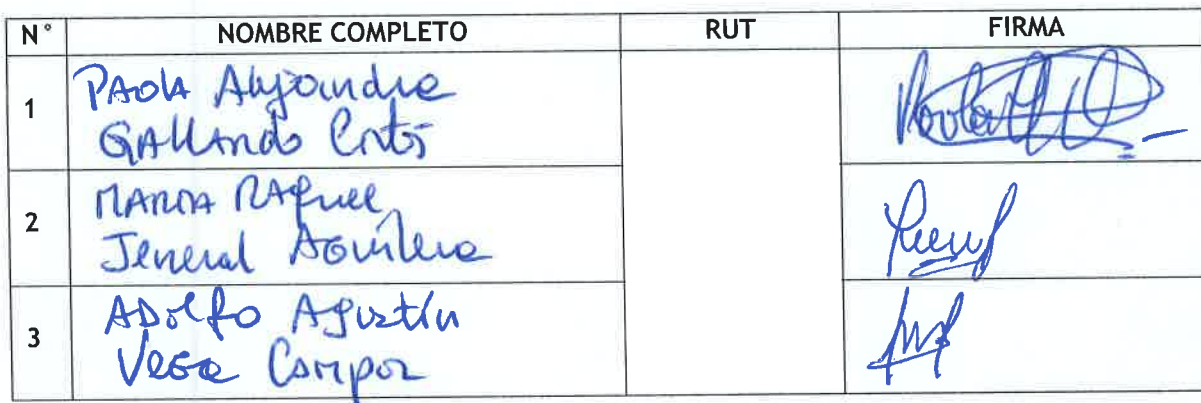 N° NOMBRE COMPLETO RUT FIRMA
1 PAOLA Alejandra
GALLARDO Cortés
2 MARIA RAQUEL
Jeneral Aguilera
3 ADOLFO Agustín
VEGA Campos